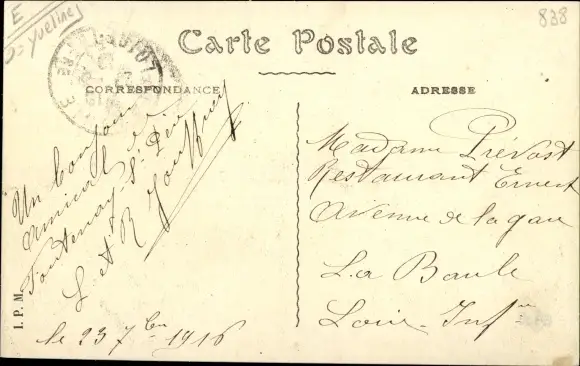 E
Yveline
838
Carte Postale
CORRESPONDANCE
ADRESSE
Un bonjour
amical de
Fontenay-St-Père
L. et R. Jouffroy
le 23 7bre 1916
I. P. M.
Madame Prévost
Restaurant Ernest
Avenue de la gare
La Baule
Loire-Infre